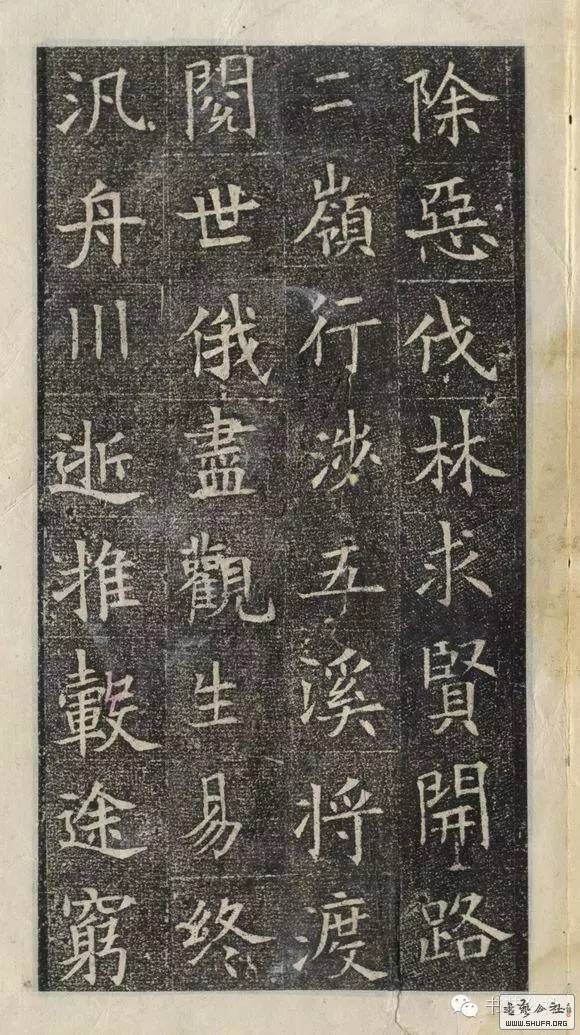 除惡伐林求賢開路
二嶺行涉五溪將渡
閱世俄盡觀生易終
汎舟川逝推轂途窮
WWW.SHUFA.ORG